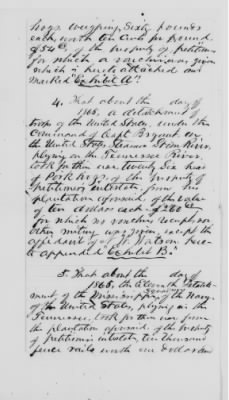 hogs weighing Sixty pounds
each worth ten cents per pound
of $54 00, of the property of petitioner
for which a voucher was given
which is hereto attached and
marked "Exhibit A".
4. That about the day of
1865, a detachment of
troops of the United States, under the
Command of Capt Bryant on
the United States Steamer Stone River,
plying on the Tennessee River,
took for their use, twenty Six head
of Pork hogs, of the property of
Petitioners intestate, from his
plantation aforesaid, of the value
of ten dollars each, $260 00
for which no voucher receipt or
other writing was given, except the
affidavit of Watson here-
to appended "Exhibit B".
5. That about the day of
1865, the eleventh detach-
ment of the Mississippi Squadron of the Navy
of the United States, plying in the
Tennessee, took for their use from
the plantation aforesaid, of the property
of petitioners intestate, ten thousand
fence rails worth one dollar and